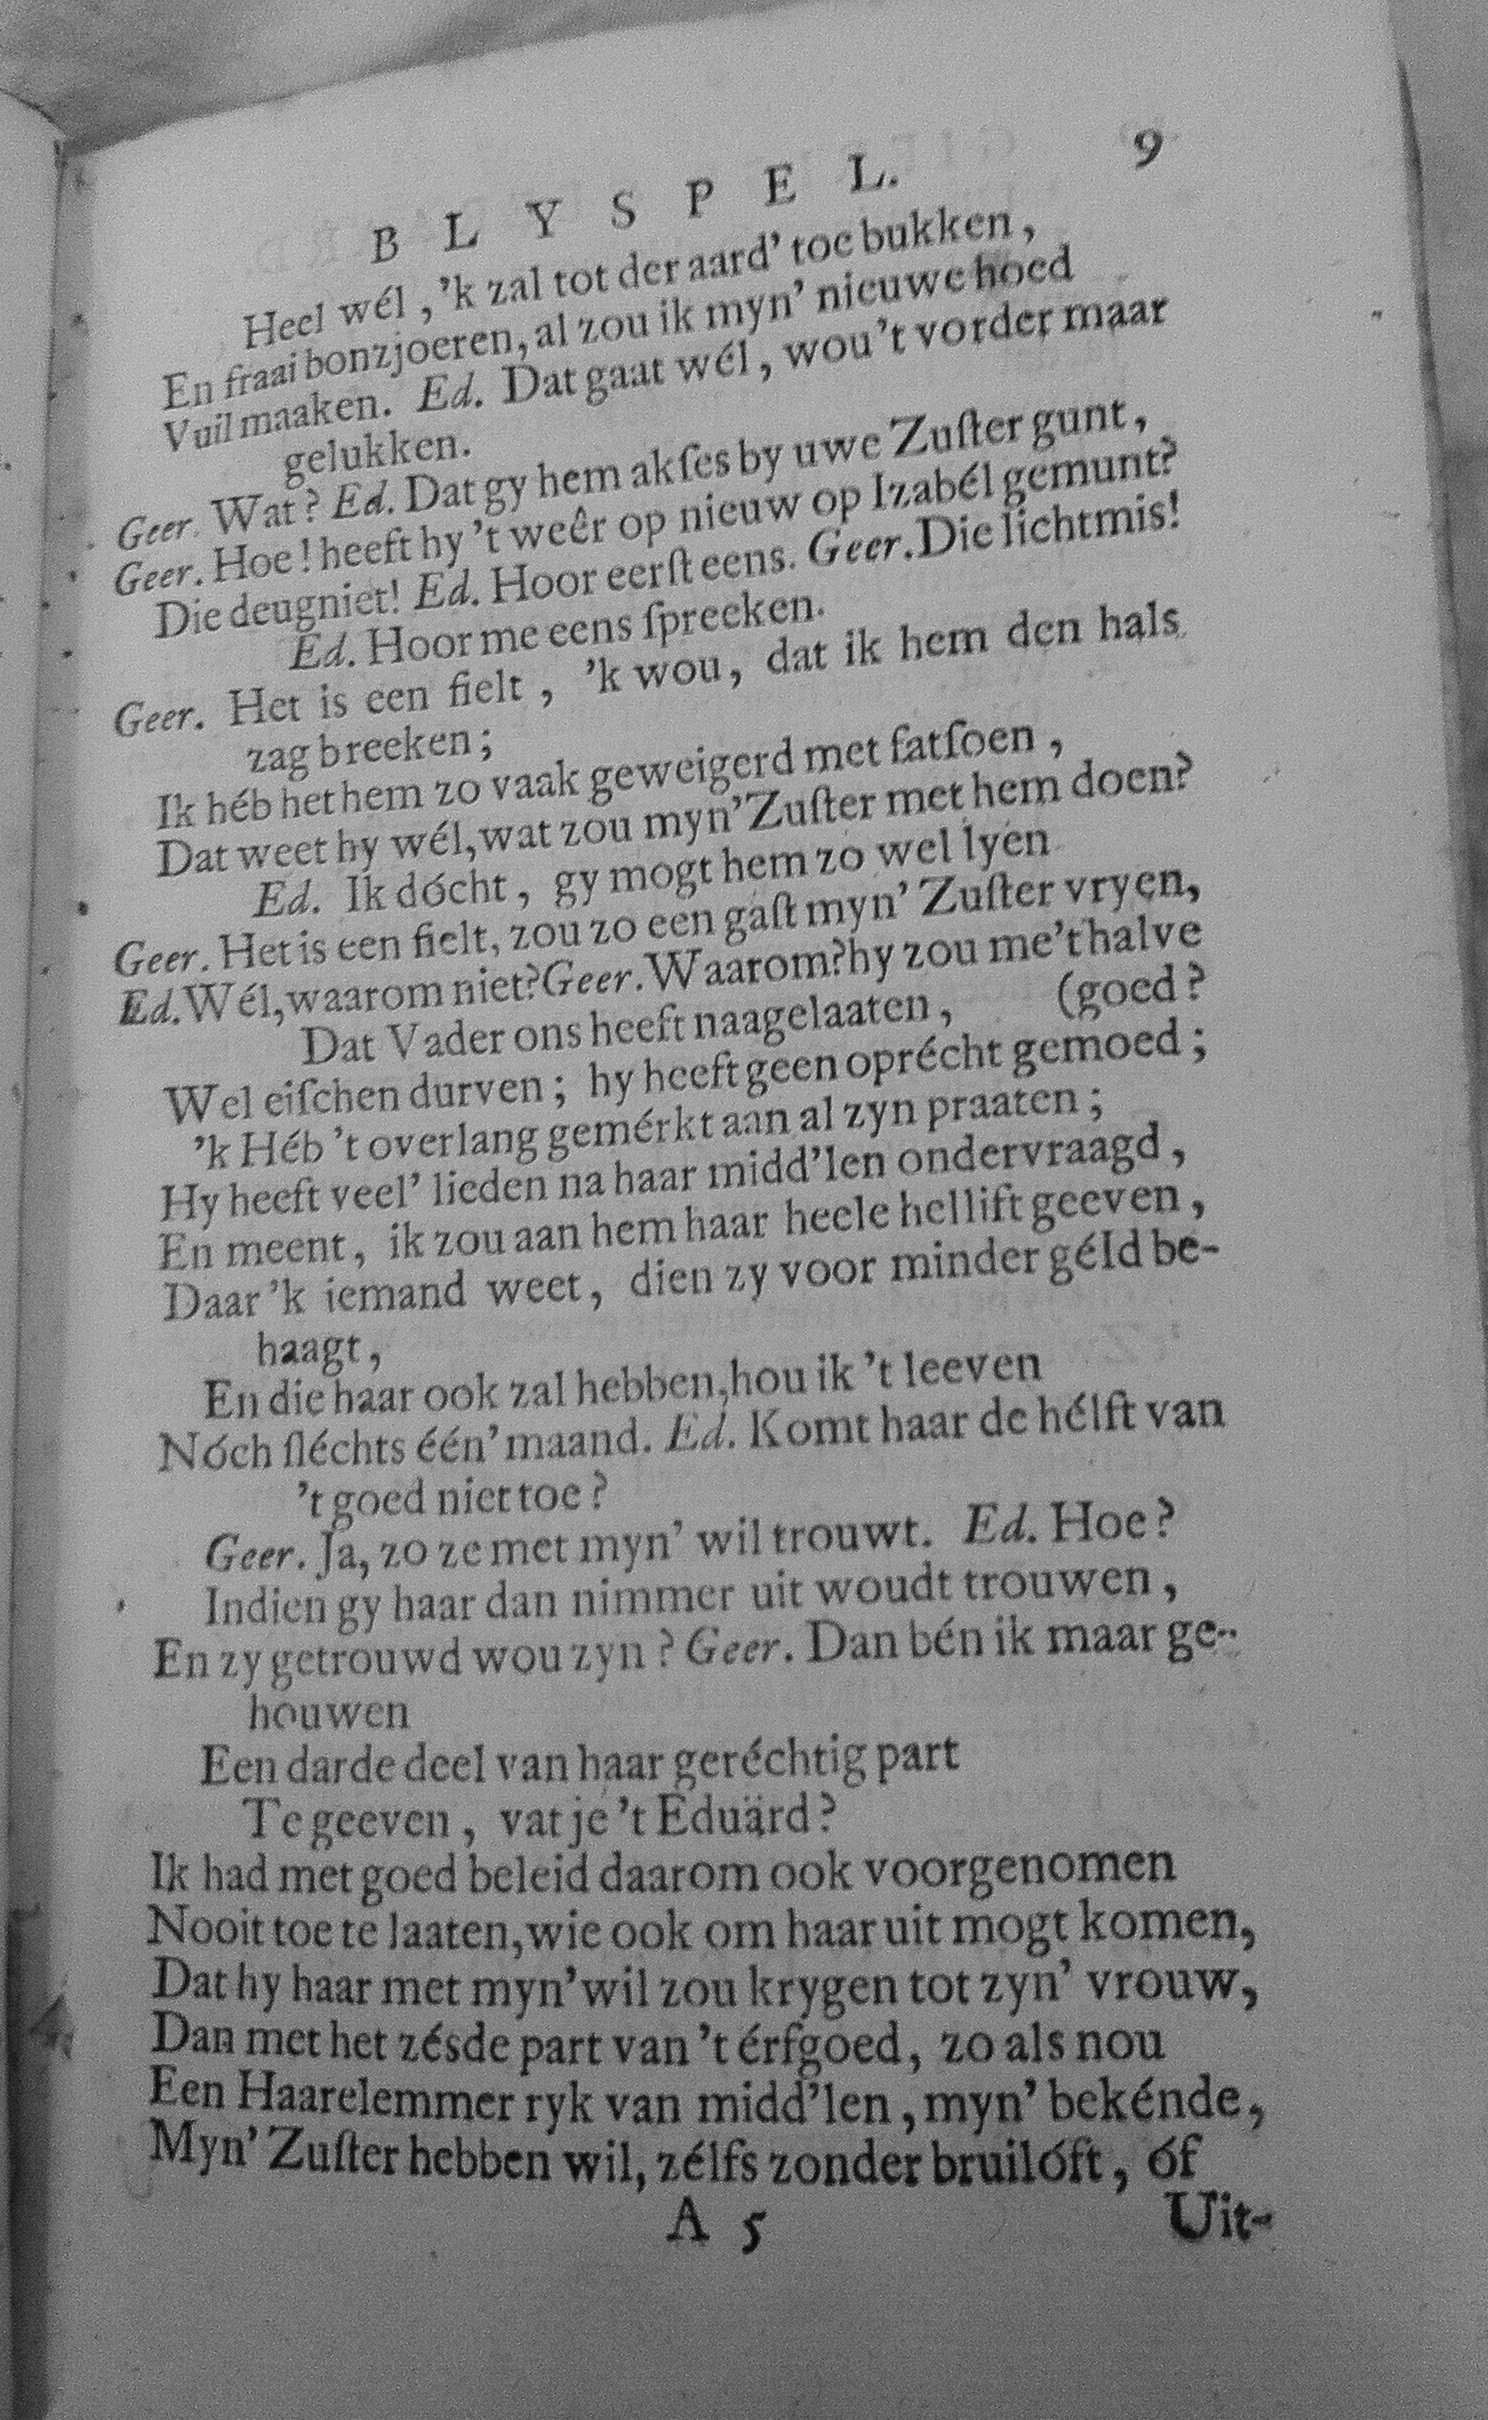 BLYSPEL. 9
Heel wél, 'k zal tot der aard' toe bukken,
En fraai bonzjoeren, al zou ik myn' nieuwe hoed
Vuil maaken. Ed. Dat gaat wél, wou 't vorder maar
gelukken.
Geer. Wat? Ed. Dat gy hem akſes by uwe Zuſter gunt,
Geer. Hoe! heeft hy 't weêr op nieuw op Izabél gemunt?
Die deugniet! Ed. Hoor eerſt eens. Geer. Die lichtmis!
Ed. Hoor me eens ſpreeken.
Geer. Het is een fielt, 'k wou, dat ik hem den hals
zag breeken;
Ik héb het hem zo vaak geweigerd met fatſoen,
Dat weet hy wél, wat zou myn' Zuſter met hem doen?
Ed. Ik dócht, gy mogt hem zo wel lyen
Geer. Het is een fielt, zou zo een gaſt myn' Zuſter vryen,
Ed. Wél, waarom niet? Geer. Waarom? hy zou me 't halve
Dat Vader ons heeft naagelaaten, (goed?
Wel eiſchen durven; hy heeft geen oprécht gemoed;
'k Héb 't overlang gemérkt aan al zyn praaten;
Hy heeft veel' lieden na haar midd'len ondervraagd,
En meent, ik zou aan hem haar heele hellift geeven,
Daar 'k iemand weet, dien zy voor minder géld be-
haagt,
En die haar ook zal hebben, hou ik 't leeven
Nóch ſléchts één' maand. Ed. Komt haar de hélft van
't goed niet toe?
Geer. Ja, zo ze met myn' wil trouwt. Ed. Hoe?
Indien gy haar dan nimmer uit woudt trouwen,
En zy getrouwd wou zyn? Geer. Dan bén ik maar ge-
houwen
Een darde deel van haar geréchtig part
Te geeven, vat je 't Eduärd?
Ik had met goed beleid daarom ook voorgenomen
Nooit toe te laaten, wie ook om haar uit mogt komen,
Dat hy haar met myn' wil zou krygen tot zyn' vrouw,
Dan met het zésde part van 't érfgoed, zo als nou
Een Haarelemmer ryk van midd'len, myn' bekénde,
Myn' Zuſter hebben wil, zélfs zonder bruilóft, óf
A 5 Uit-